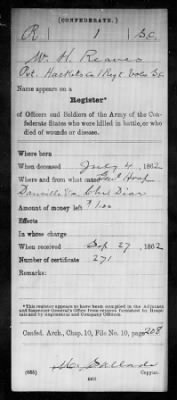 (CONFEDERATE.)
R 1 S.C.
W. H. Reaves
Pvt. Hackets Co 1 Regt Vols S.C.
Name appears on a
Register*
of Officers and Soldiers of the Army of the Confederate States who were killed in battle, or who died of wounds or disease.
Where born
When deceased July 4, 1862
Where and from what cause Genl Hosp
Danville Va. Chr. Diar
Amount of money left $1.00
Effects
In whose charge
When received Sep 27, 1862
Number of certificate 271
Remarks:
*This register appears to have been compiled in the Adjutant and Inspector General's Office from returns furnished by Hospitals and by Regimental and Company Officers.
Confed. Arch., Chap. 10, File No. 10, page 208
(655) Copyist.